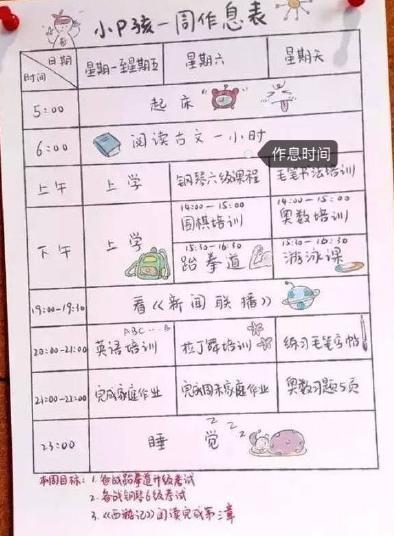 小P孩一周作息表
日期
时间
星期一至星期五
星期六
星期天
5:00
起床
6:00
阅读古文一小时
作息时间
上午
上学
钢琴六级课程
毛笔书法培训
下午
上学
14:00-15:00
围棋培训
14:00-15:00
奥数培训
15:30-16:30
跆拳道
15:30-16:30
游泳课
19:00-19:30
看《新闻联播》
20:00-21:00
ABC
英语培训
拉丁舞培训
练习毛笔字帖
21:00-22:00
完成家庭作业
完成周末家庭作业
奥数习题5页
23:00
睡觉
z z z
本周目标:1.备战跆拳道升级考试
2.备战钢琴6级考试
3.《西游记》阅读完成第三章